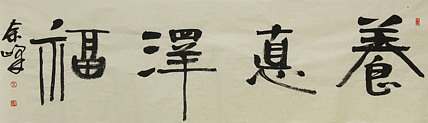 養真澤福
余峰